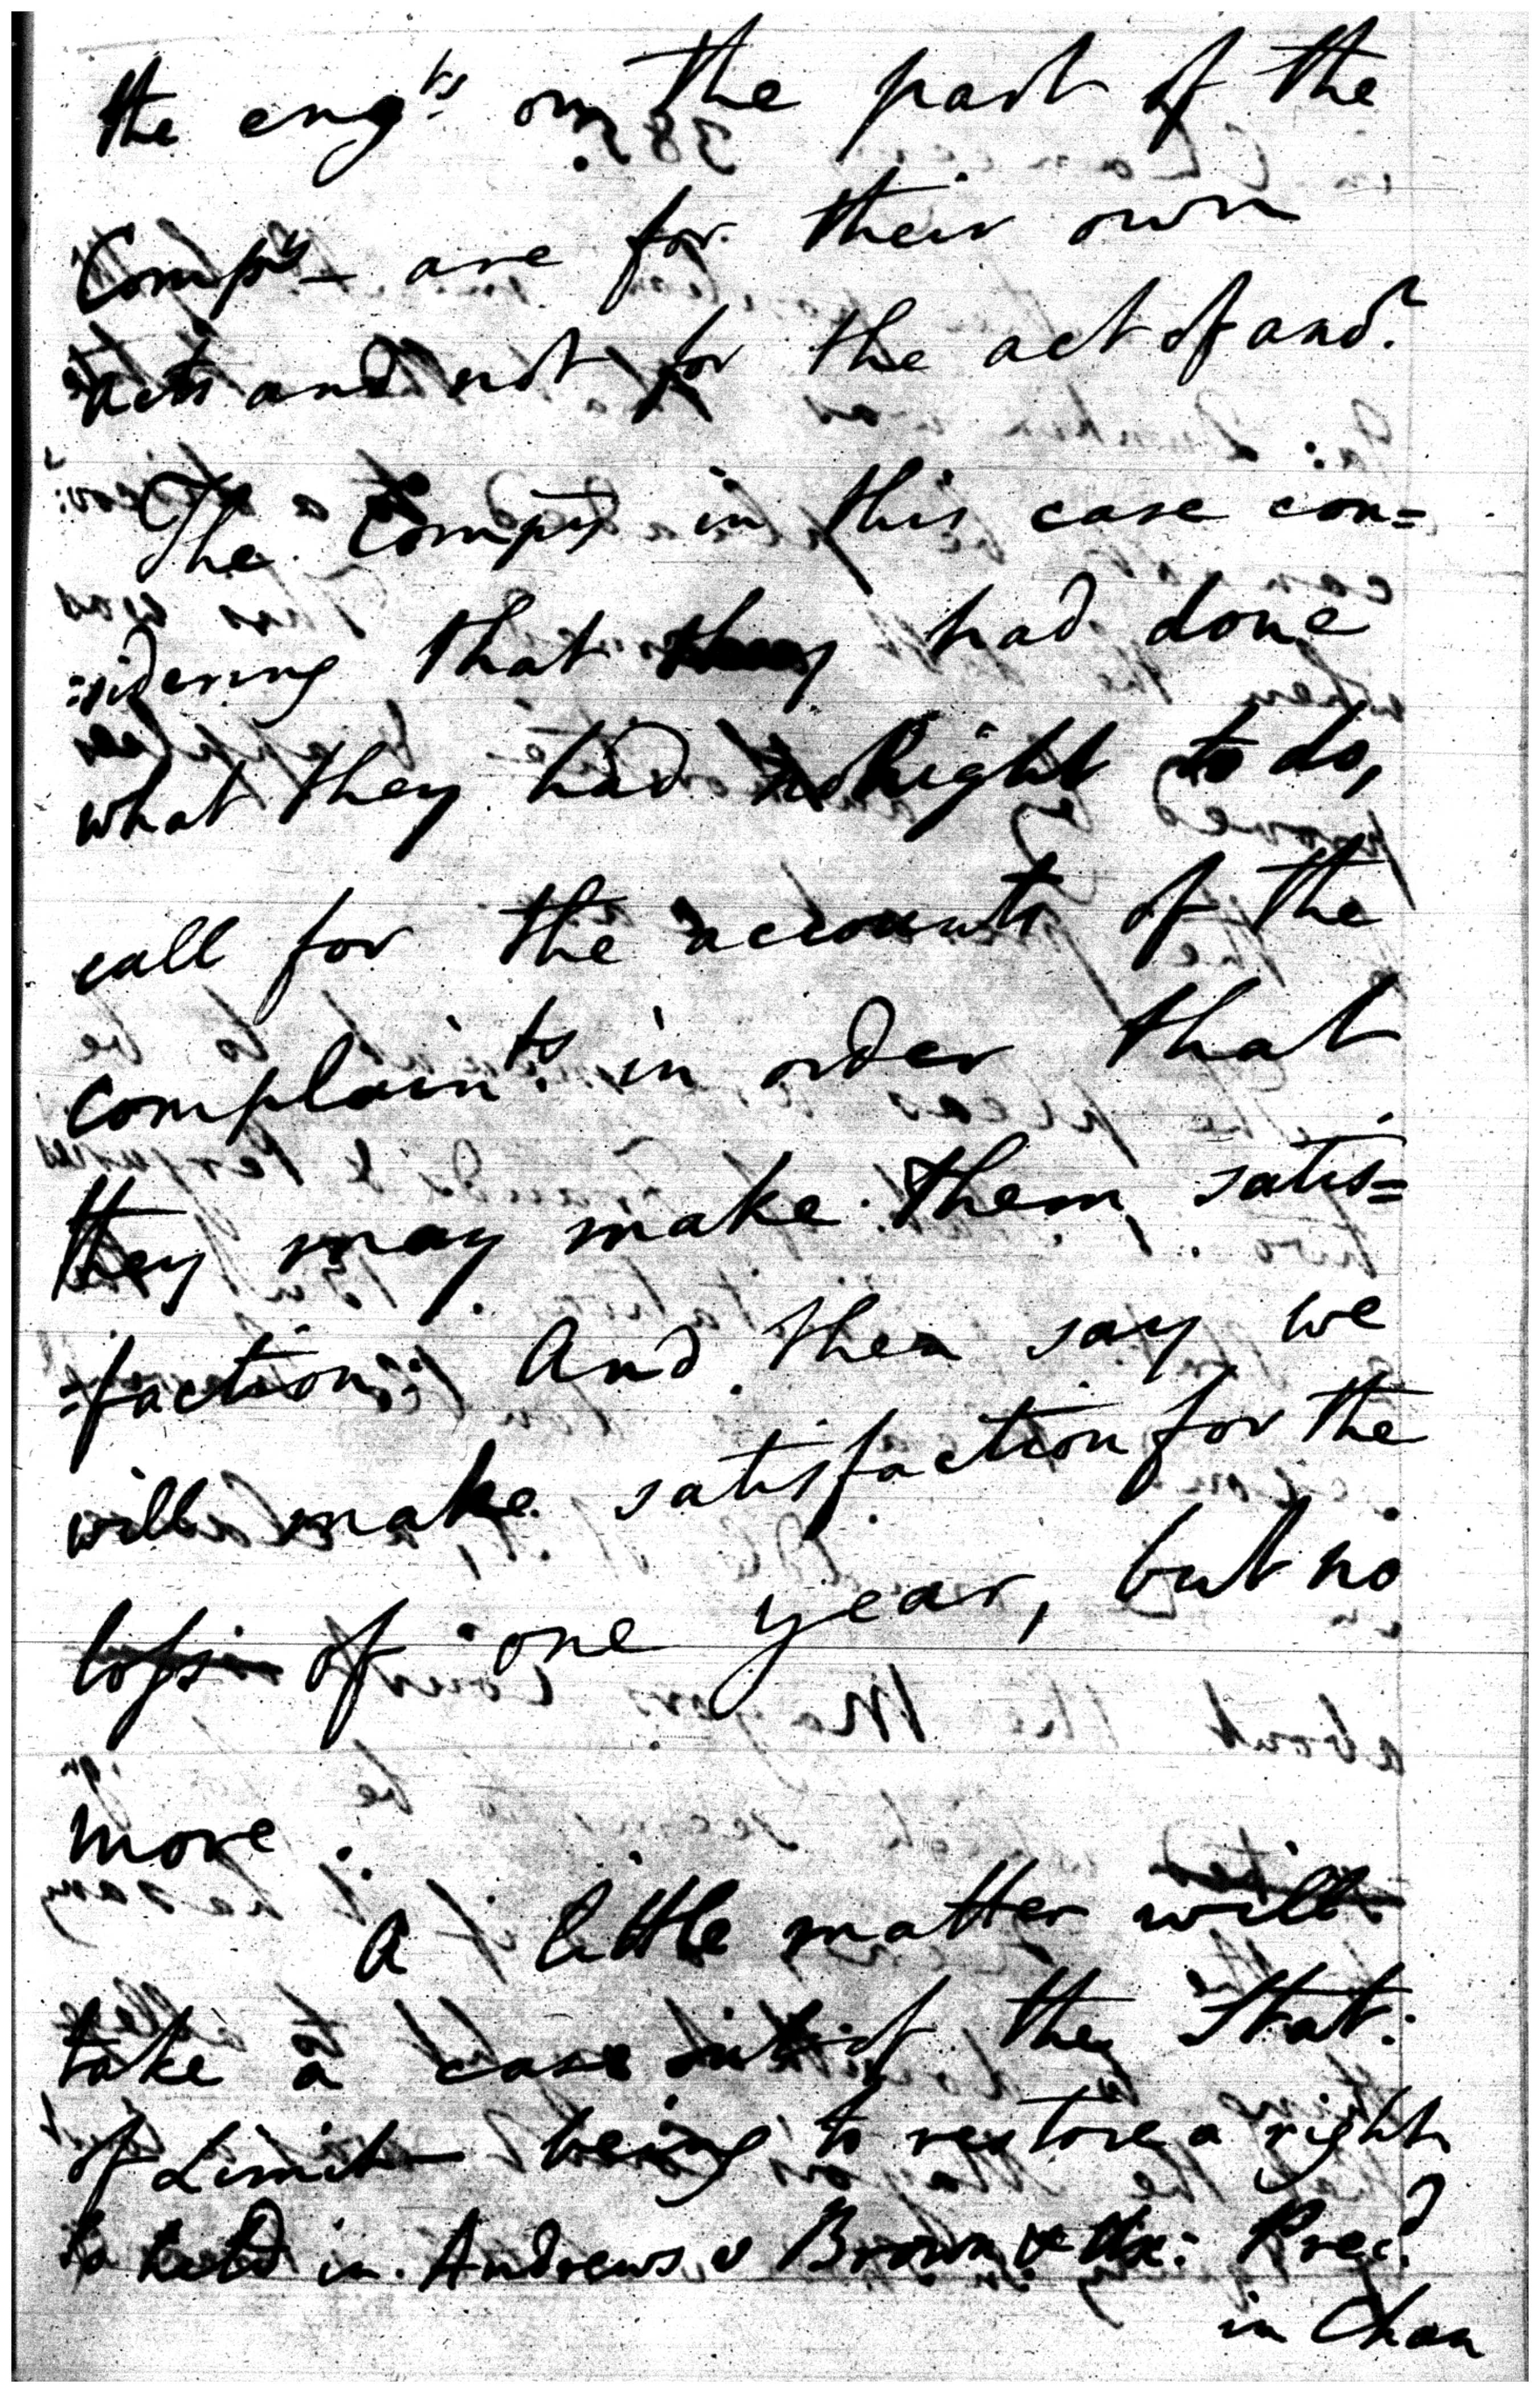 the eng.ts on the part of the
Compy - are for their own
acts and not for the act of anor.
The Compy in this case con=
=sidering that they had done
what they had right to do,
call for the accounts of the
complain.ts in order that
they may make them, satis=
=faction; And then say we
will make satisfaction for the
loss of one year, but no
more.
A little matter will
take a case out of the Stat:
of Limit - being to restore a right
so held in Andrews v Brown Prec.
in Chan